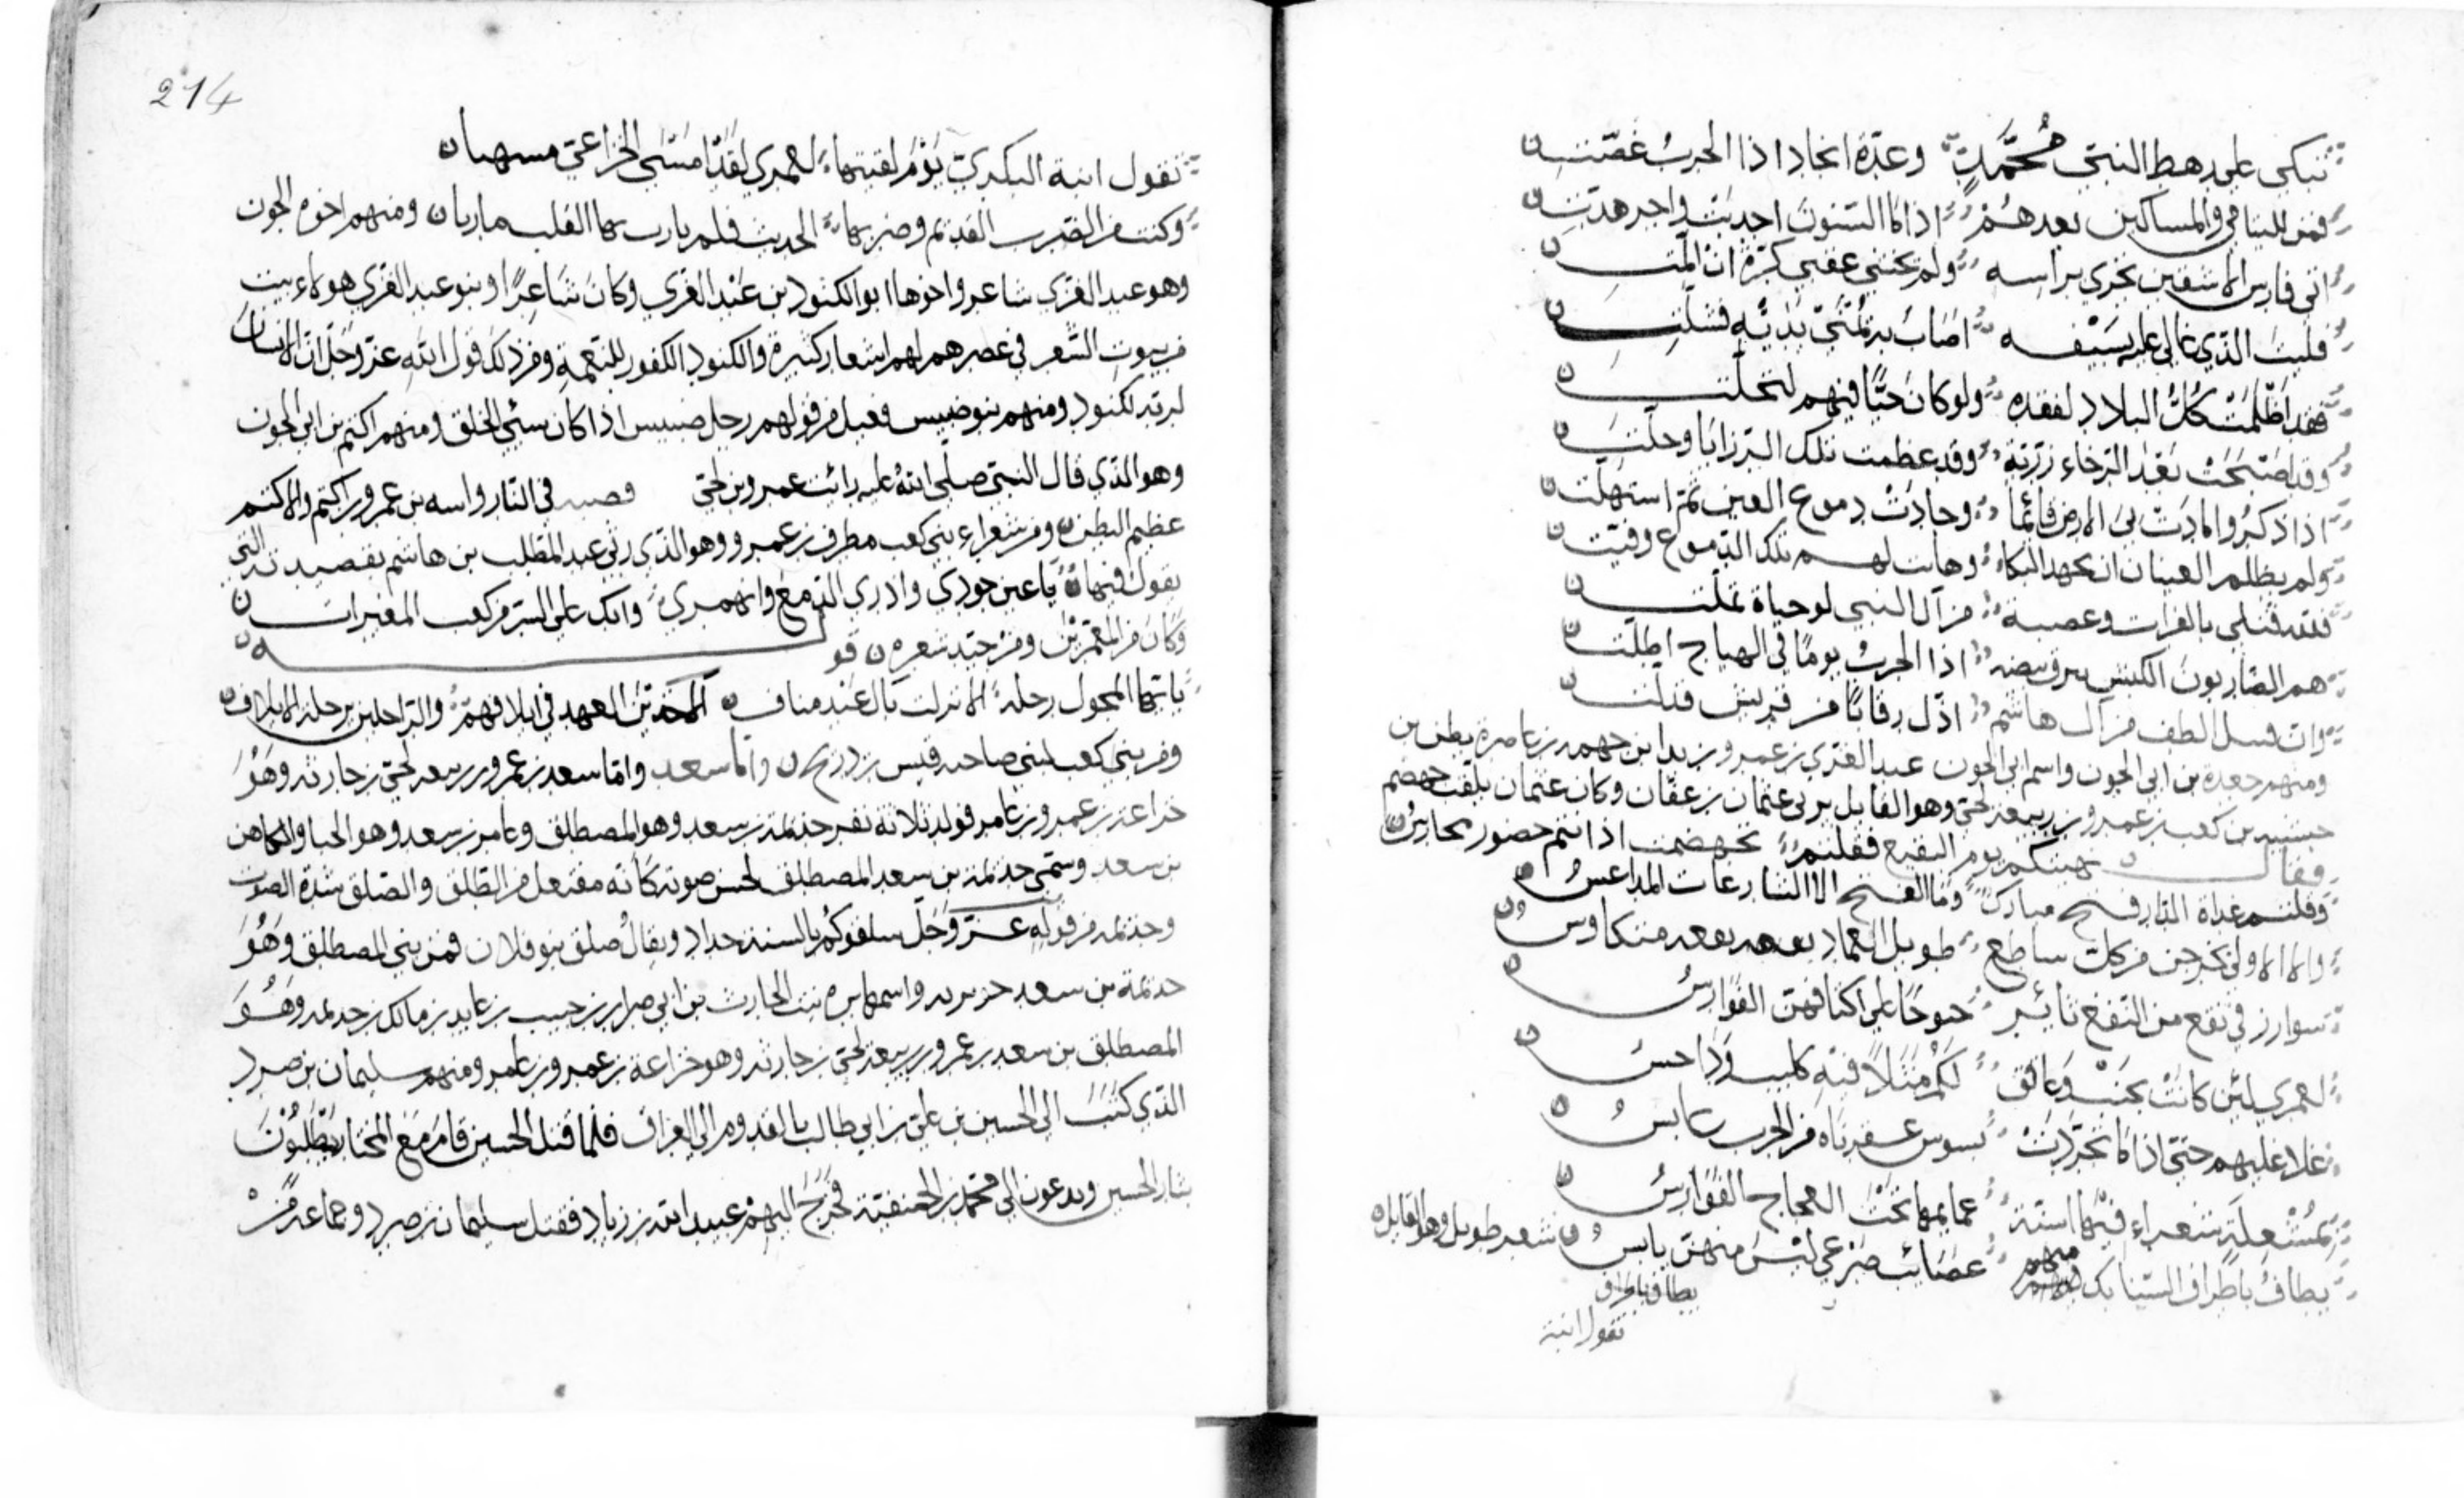 تبكى على رهط النبي محمد وعدة انجاد اذا الحرب غصّت
فمن لليتامى والمساكين بعدهم اذا ما السنون اجدبت واجرهدت
اتى فارس الاشقين يجري براسه ولم يخشى عقبى كرة ان المت
فليت الذي عالى عليه بسيفه اصاب به يمنى يديه فشلت
فقد اظلمت كل البلاد لفقده ولو كان حيّا فيهم لتجلت
وقد اصبحت بعد الرخاء رزية وقد عظمت تلك الرزايا وحلت
اذا ذكروا مادت بي الارض قائما وجادت دموع العين ثم استهلت
ولم يظلم العينان ان يجهد البكاء وهانت لهم تلك الدموع وقلت
فلله قتلى بالفرات وعصبة من آل النبي لو حياة تملت
هم الضاربون الكبش يبرق بيضه اذا الحرب يوما في الهياج اظلت
وان قتيل الطف من آل هاشم اذل رقابا من قريش فذلت
ومنهم جعدة بن ابي الجون واسم ابي الجون عبد العزى بن عمرو بن زيد بن جهمه بن عاصرة بطن بن
حبشيه بن كعب بن عمرو بن ربيعه لحى وهو القايل يرثي عثمان بن عفان وكان عثمان يلقب جهضم
فقال نهيتكم يوم البقيع فقلتم تجهضمت اذ انتم حضور مجاريس
وقلتم غداة الدار فتح مبارك وما الفتح الا الشارعات المداعس
والا الاولى يخرجن من كل ساطع طويل العماد متكاوس
سوارز في نقع من النقع ثائر جنوحا على اكتافهن الفوارس
لعمري لئن كانت بجنب وعالق لكم مثلا فيه كليب وداحس
علا عليهم حتى اذا ما تجردت بسوس من الحرب عابس
بمشعلة شعراء فيها اسنة عمايمها تحت العجاج الفوارس
يطاف باطراف السنابك منهم عصائب صرعى ليس منهن يابس شعر طويل وهو القايل
يطاف باطراف
تقول ابنة
214
تقول ابنة البكري يوم لقيتها لعمري لقد امسى الخزاعي مسهبا
وكنت الضرب القديم وضربها الحديث فلم يارب بها القلب ماربا ومنهم اخوه الجون
وهو عبد العزى شاعر واخوها ابو الكنود بن عبد العزى وكان شاعرا وبنو عبد العزى هولاء بيت
من بيوت الشعر في عصرهم لهم اشعار كثيرة والكنود الكفور للنعمة ومن ذلك قول الله عز وجل ان الانسان
لربه لكنود ومنهم بنو ضبيس فعيل من قولهم رجل ضبيس اذا كان سئي الخلق ومنهم اكثم بن ابي الجون
وهو الذي قال النبي صلى الله عليه رائت عمرو بن لحى قصبه في النار واسه بن عمرو اكثم والاكثم
عظيم البطن ومن شعراء بني كعب مطرف بن عمرو وهو الذي رثى عبد المطلب بن هاشم بقصيدته التي
يقول فيها يا عين جودي واذري الدمع وانهمري وابك على السر من كعب المغيرات
وكان من المعمرين ومن جيد شعره قوله
يا ايها المحول رحله الا نزلت بال عبد مناف الآخذين العهد في ايلافهم والراحلين برحلة الايلاف
ومن بني كعب لبنى صاحبه قيس بن ذريح واما سعد واما سعد بن عمرو بن ربيعه لحى بن حارثه وهو
خزاعه بن عمرو بن عامر فولد ثلاثة نفر جذيمة بن سعد وهو المصطلق وعامر بن سعد وهو الحيا والكاهن
بن سعد وسمى جذيمة بن سعد المصطلق لحسن صوته كأنه مفتعل من الطلق والصلق شدة الصوت
وجذيمه من قوله عز وجل سلقوكم بالسنة حداد ويقال صلق بنو فلان فمن بني المصطلق وهو
جذيمة بن سعد واسمها بره بنت الحارث بن ابي ضرار بن حبيب بن عايد بن مالك بن جذيمه وهو
المصطلق بن سعد بن عمرو بن ربيعه لحى بن حارثه وهو خزاعة بن عمرو بن عامر ومنهم سليمان بن صرد
الذي كتب الى الحسين بن علي بن ابي طالب بالقدوم الى العراق فلما قتل الحسين قام مع المختار يطلبون
بثار الحسين ويدعون الى محمد بن الحنفية فخرج اليهم عبيد الله بن زياد فقتل سليمان بن صرد وجماعة من